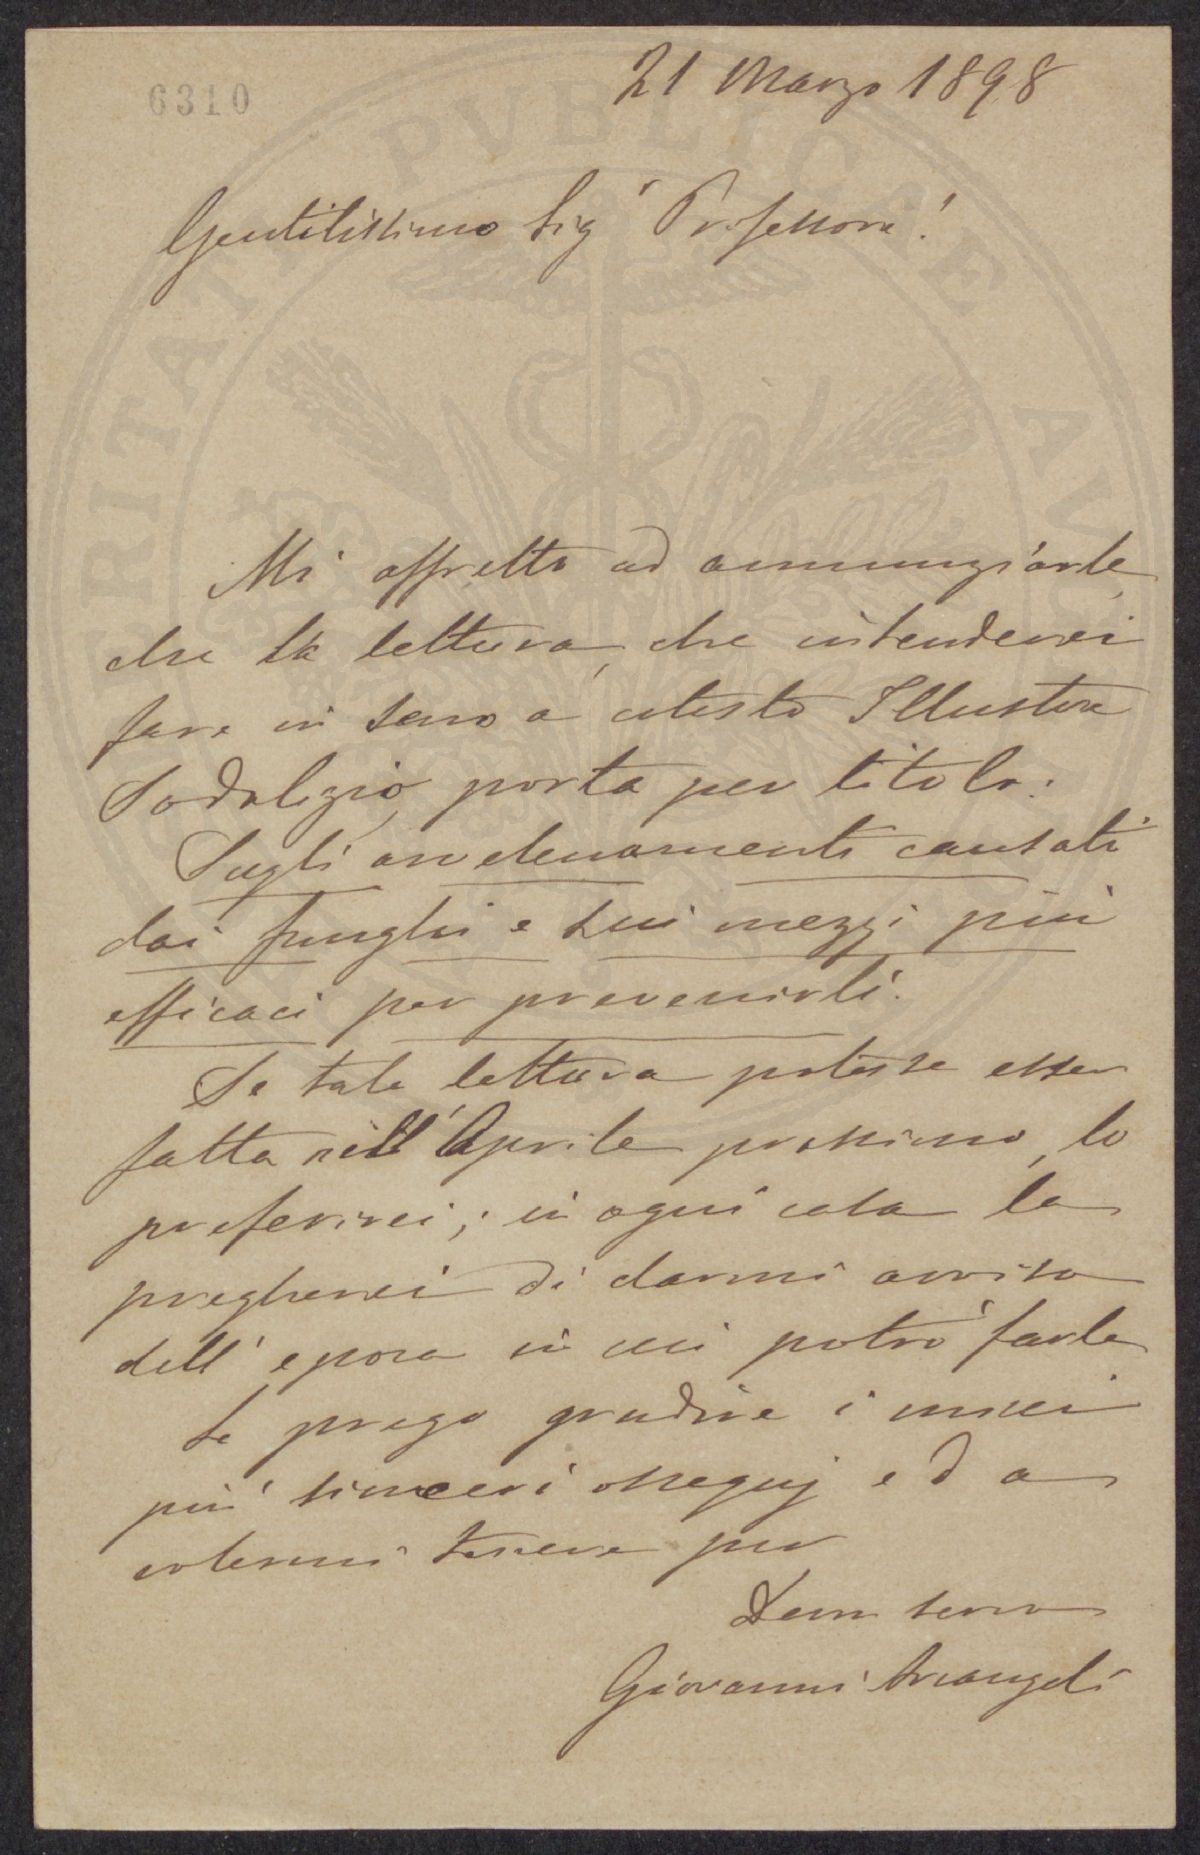 6310
21 Marzo 1898
Gentilissimo Sigr Professore!
Mi affretto ad annunziarle,
che la lettura, che intenderei
fare in seno a cotesto Illustre
Sodalizio, porta per titolo:
Sugli avvelenamenti causati
dai funghi e sui mezzi più
efficaci per prevenirli.
Se tale lettura potesse esser
fatta nell'Aprile prossimo, lo
preferirei; in ogni caso la
pregherei di darmi avviso
dell'epoca in cui potrò farla
La prego gradire i miei
più sinceri ossequj ed a
volermi tenere per
Dem servo
Giovanni Arcangeli